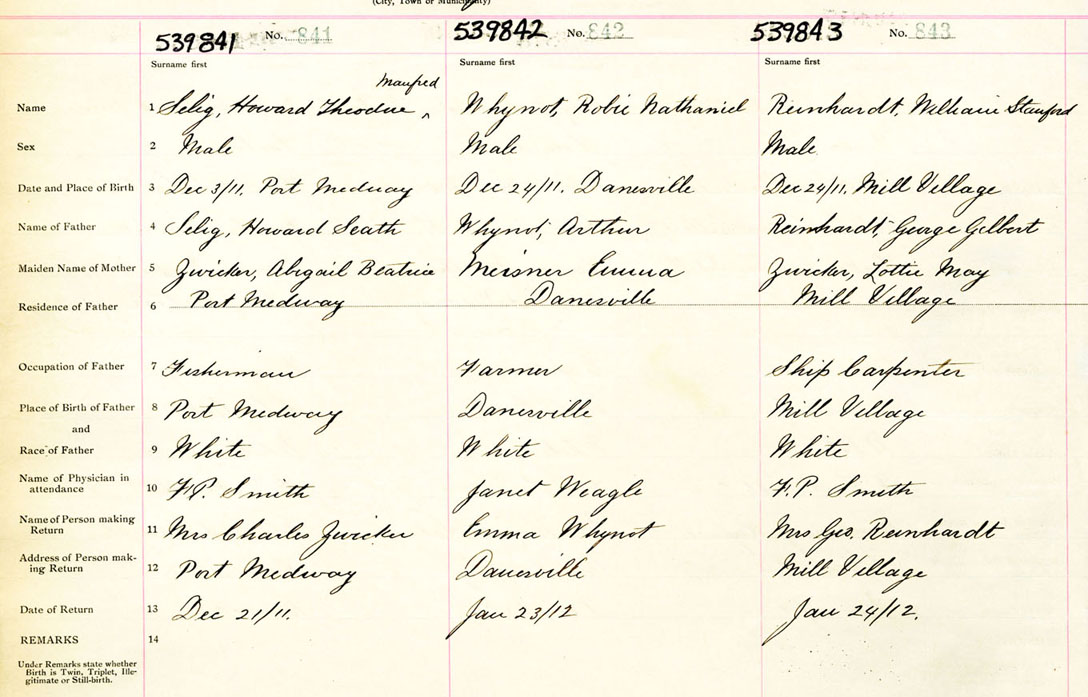 (City, Town or Municipality)
539841 No. 841 539842 No. 842 539843 No. 843
Surname first Surname first Surname first
Manfred
Name 1 Selig, Howard Theodue ‸ Whynot, Robie Nathaniel Reinhardt, William Stanford
Sex 2 Male Male Male
Date and Place of Birth 3 Dec 3/11. Port Medway Dec 24/11. Danesville Dec 24/11. Mill Village
Name of Father 4 Selig, Howard Seath Whynot, Arthur Reinhardt, George Gelbert
Maiden Name of Mother 5 Zwicker, Abigail Beatrice Meisner Emma Zwicker, Lottie May
Residence of Father 6 Port Medway Danesville Mill Village
Occupation of Father 7 Fisherman Farmer Ship Carpenter
Place of Birth of Father 8 Port Medway Danesville Mill Village
and
Race of Father 9 White White White
Name of Physician in
attendance 10 F.P. Smith Janet Weagle F.P. Smith
Name of Person making
Return 11 Mrs Charles Zwicker Emma Whynot Mrs Geo. Reinhardt
Address of Person mak-
ing Return 12 Port Medway Danesville Mill Village
Date of Return 13 Dec 21/11. Jan 23/12 Jan 24/12.
REMARKS 14
Under Remarks state whether
Birth is Twin, Triplet, Ille-
gitimate or Still-birth.